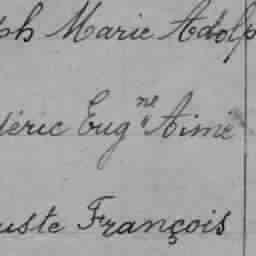 ph Marie Adolp
déric Eug.ne Aimé
uste François